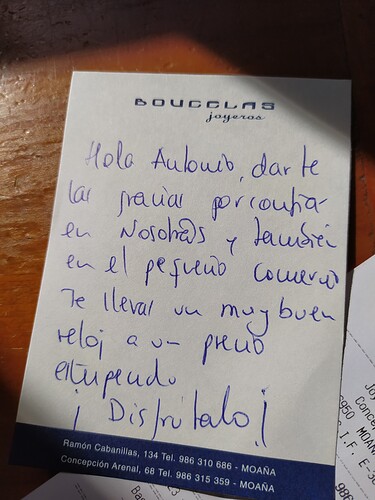 DOUGGLAS
joyeros
Hola Antonio, darte
las gracias por confiar
en Nosotr@s y también
en el pequeño comercio
Te llevas un muy buen
reloj a un precio
estupendo
¡ Disfrútalo !
Ramón Cabanillas, 134 Tel. 986 310 686 - MOAÑA
Concepción Arenal, 68 Tel. 986 315 359 - MOAÑA